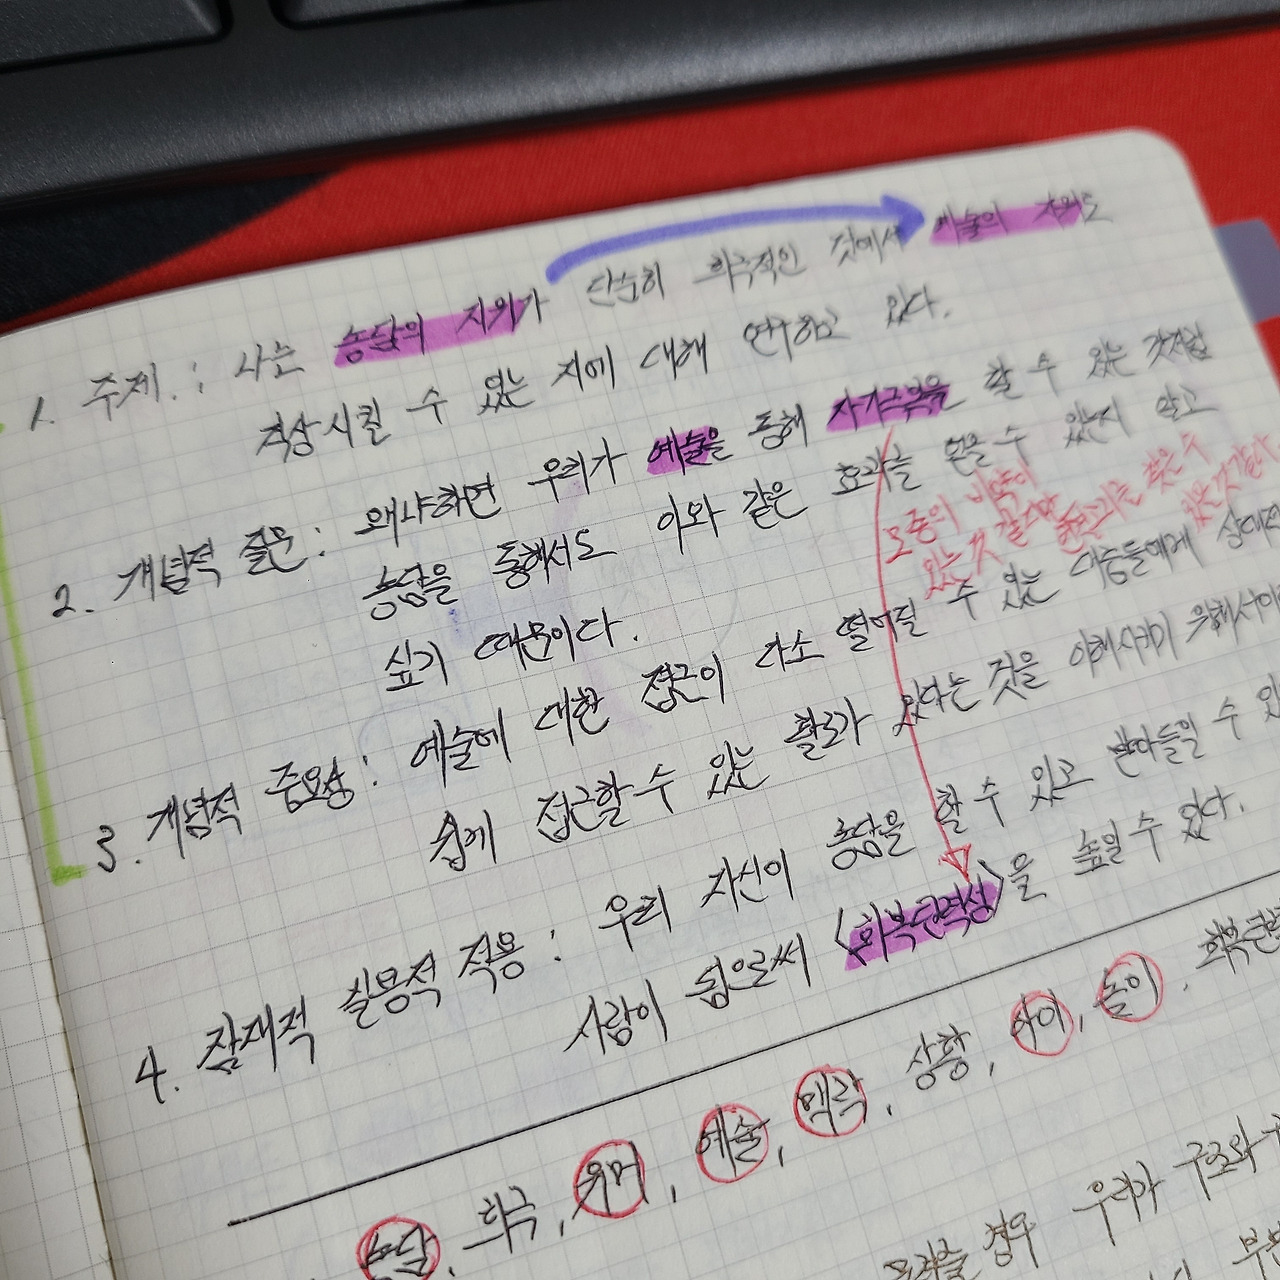 1. 주제. : 나는 농담의 지위가 단순히 희극적인 것에서 예술의 지위로
격상시킬 수 있는 지에 대해 연구하고 있다.
2. 개념적 질문 : 왜냐하면 우리가 예술을 통해 자기극복을 할 수 있는 것처럼
농담을 통해서도 이와 같은 효과를 얻을 수 있는지 알고
싶기 때문이다.
모종의 비약이
있는 것 같지만 연결고리는 찾을 수
있을 것 같다
3. 개념적 중요성 : 예술에 대한 접근이 다소 떨어질 수 있는 대중들에게
쉽게 접근할 수 있는 활로가 있다는 것을 이해시키기 위해서이
4. 잠재적 실용적 적용 : 우리 자신이 농담을 할 수 있고 받아들일 수 있
사람이 됨으로써 <회복탄력성>을 높일 수 있다.
농담, 희극, 유머, 예술, 맥락, 상황, 아이, 놀이, 회복탄력
경우 우리가 구조와